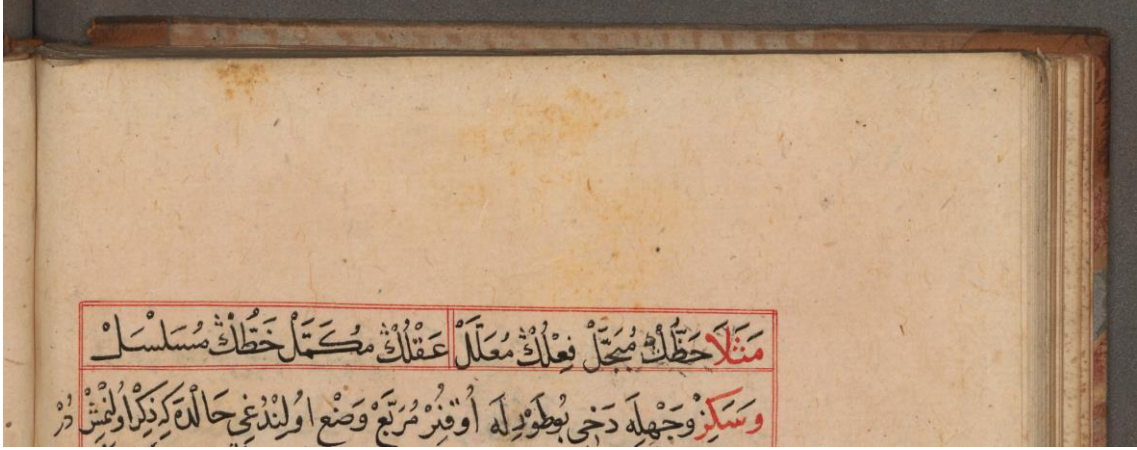 مَثَلَا حَظُّكْ مُبَجَّلْ فِعْلُكْ مُعَلَّلْ عَقْلُكْ مُكَمَّلْ خَطُّكْ مُسَلْسَلْ
وَسَكِزْ وَجْهِلَه دَخِى بُو طَوْرِلَه اُوقُنُرْ مُرَبَّعْ وَضْع اُولِنْدُغِى حَالْدَه كِه ذِكْر اُولُنْمِشْ دُرْ